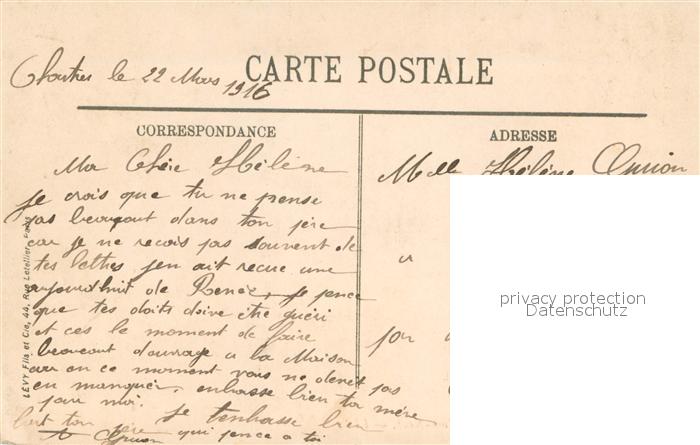 Chartres le 22 Mars 1916
CARTE POSTALE
CORRESPONDANCE
ADRESSE
Ma Chère Hélène
je crois que tu ne pense
pas beaucout dans ton père
car je ne recois pas souvent de
tes lettres jen ait recue une
aujourdhuit de Renée, je pence
que tes doits doive être guéri
et ces le moment de faire
beaucout douvrage a la Maison
car en ce moment vous ne devet pas
en manquer, enbrasse bien ta mère
pour moi. Je tenbrasse bien
fort ton père
qui pence a toi
Melle Hélène
a
par
LEVY Fils et Cie, 44, Rue Letellier, Paris
privacy protection
Datenschutz